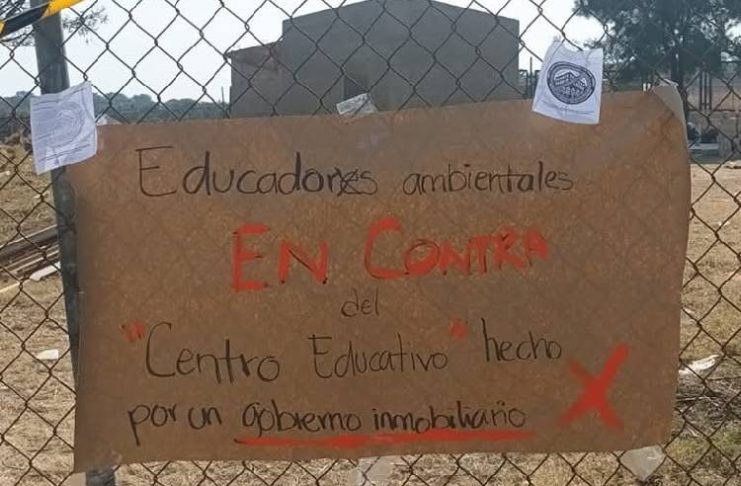 Educadorxs ambientales
EN CONTRA
del
"Centro Educativo" hecho
por un gobierno inmobiliario
X